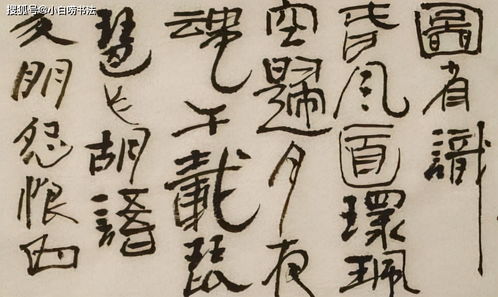 搜狐号@小白唠书法
圖省識
春風面環珮
空歸月夜
魂千載琵
琶作胡語
分明怨恨曲